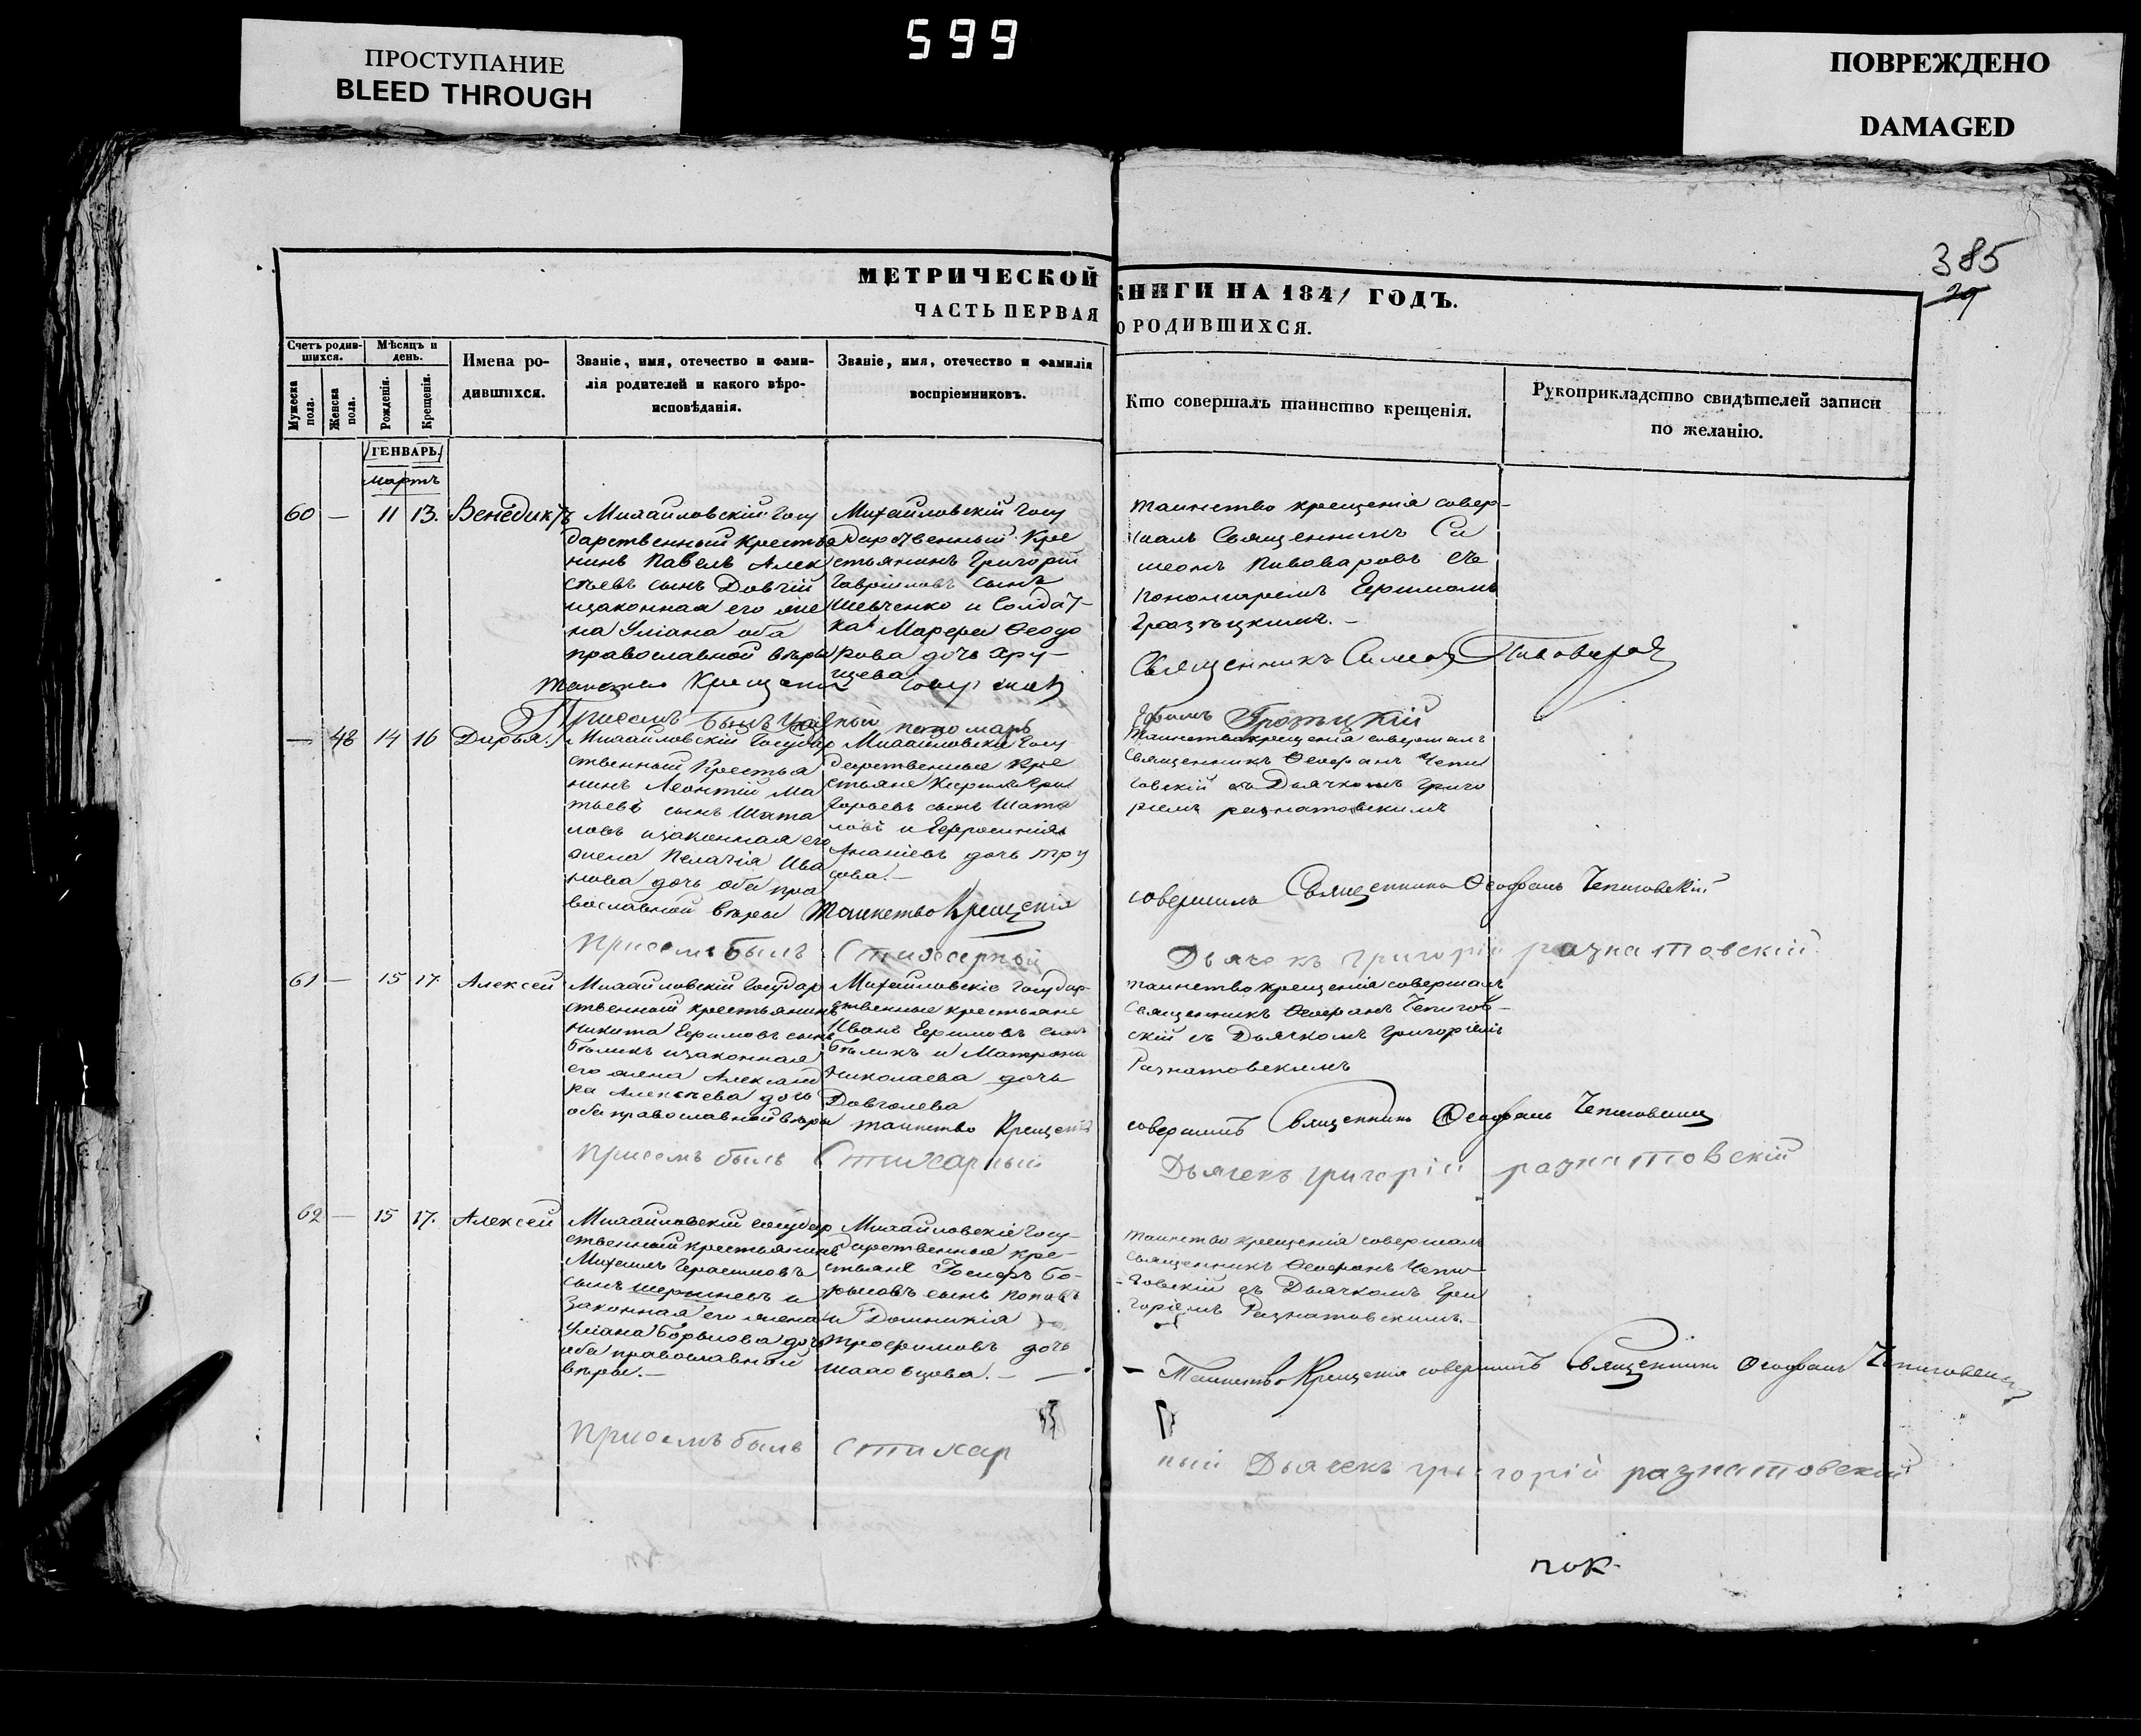 599
ПРОСТУПАНИЕ
BLEED THROUGH
ПОВРЕЖДЕНО
DAMAGED
385
29
МЕТРИЧЕСКОЙ КНИГИ НА 1841 ГОДЪ.
ЧАСТЬ ПЕРВАЯ О РОДИВШИХСЯ.
Счетъ родив-
шихся.
Мужеска
пола.
Женска
пола.
Мѣсяцъ и
день.
Рожденія.
Крещенія.
Имена ро-
дившихся.
Званіе, имя, отечество и фами-
лія родителей и какого вѣро-
исповѣданія.
Званіе, имя, отечество и фамилія
воспріемниковъ.
Кто совершалъ таинство крещенія.
Рукоприкладство свидѣтелей записи
по желанію.
ГЕНВАРЬ
мартъ
60 — 11 13. Венедиктъ
Михайловскій Госу
дарственный Крестья
нинъ Павелъ Алек
сѣевъ сынъ Довгій
изаконная его же
на Уліана оба
православной вѣры
Михайловскій Госу
дарственный Кре
стьянинъ Григорій
Гавріиловъ сынъ
Шевченко и Солдат-
ка Марфа Ѳеодо
рова дочь
Таинство крещенія совер-
шалъ Священникъ Си
меонъ Пивоваровъ съ
пономаремъ Ефимомъ
Священникъ Симеон Пивоваров
Таинства Крещенія
Присемъ былъ пономарь
Ефимъ
— 48 14 16 Дарья.
Михайловскій Государ
ственный Крестья
нинъ Леонтій Ма
тьевъ сынъ Шата
ловъ изаконная его
жена Пелагія Ива
нова дочь оба пра
вославной вѣры
Михайловскіе Госу
дарственные Кре
стьяне Кирилъ Гри
горьевъ сынъ Шата
ловъ и Ефросинія
Ананіевъ дочь Тру
сова.—
Таинство крещенія совершалъ
Священникъ Ѳеофанъ Чепи
говскій съ Дьячкомъ Григо
ріемъ разнатовскимъ
Таинство Крещенія
совершилъ Священникъ Ѳеофанъ Чепиговскій
Присемъ былъ Стихарный Дьячокъ григорій разнатовскій
61 — 15 17. Алексей
Михайловскій Государ
ственной крестьянинъ
Никита Ефимовъ сынъ
Бѣликъ изаконная
его жена Александ
ра Алексѣева дочь
оба православной вѣры
Михайловскіе Государ-
ственные крестьяне
Иванъ Ефимовъ сынъ
Бѣликъ и Матрона
Николаева дочь
Довголева
Таинство крещенія совершалъ
Священникъ Ѳеофанъ Чепигов-
скій съ Дьячкомъ Григоріемъ
Разнатовскимъ
таинство Крещенія
совершилъ Священникъ Ѳеофанъ Чепиговскій
Присемъ былъ Стихарный Дьячекъ григорій разнатовскій
62 — 15 17. Алексей
Михайловскій Государ
ственный крестьянинъ
Михаилъ Герасимовъ
сынъ и
законная его жена
Уліана Борисова дочь
оба православной
вѣры.—
Михайловскіе Госу-
дарственные кре-
стьяне Іосифъ Бо-
рисовъ сынъ Поповъ
и Домникія
Трофимовъ дочь
Таинство крещенія совершалъ
Священникъ Ѳеофанъ Чепи-
говскій съ Дьячкомъ Гри
горіемъ Разнатовскимъ.—
— Таинство Крещенія совершилъ Священникъ Ѳеофанъ Чепиговскій
Присемъ былъ стихар
ный Дьячекъ григорій разнатовскій
пок.